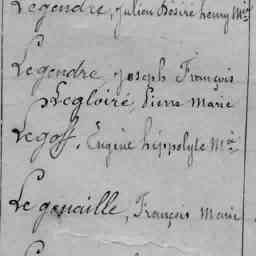 Legendre, Julien Désiré henry Mie
Legendre, Joseph François
Legloiré, Pierre Marie
Legoff, Eugène hippolyte Mie
Le genaille, François Marie